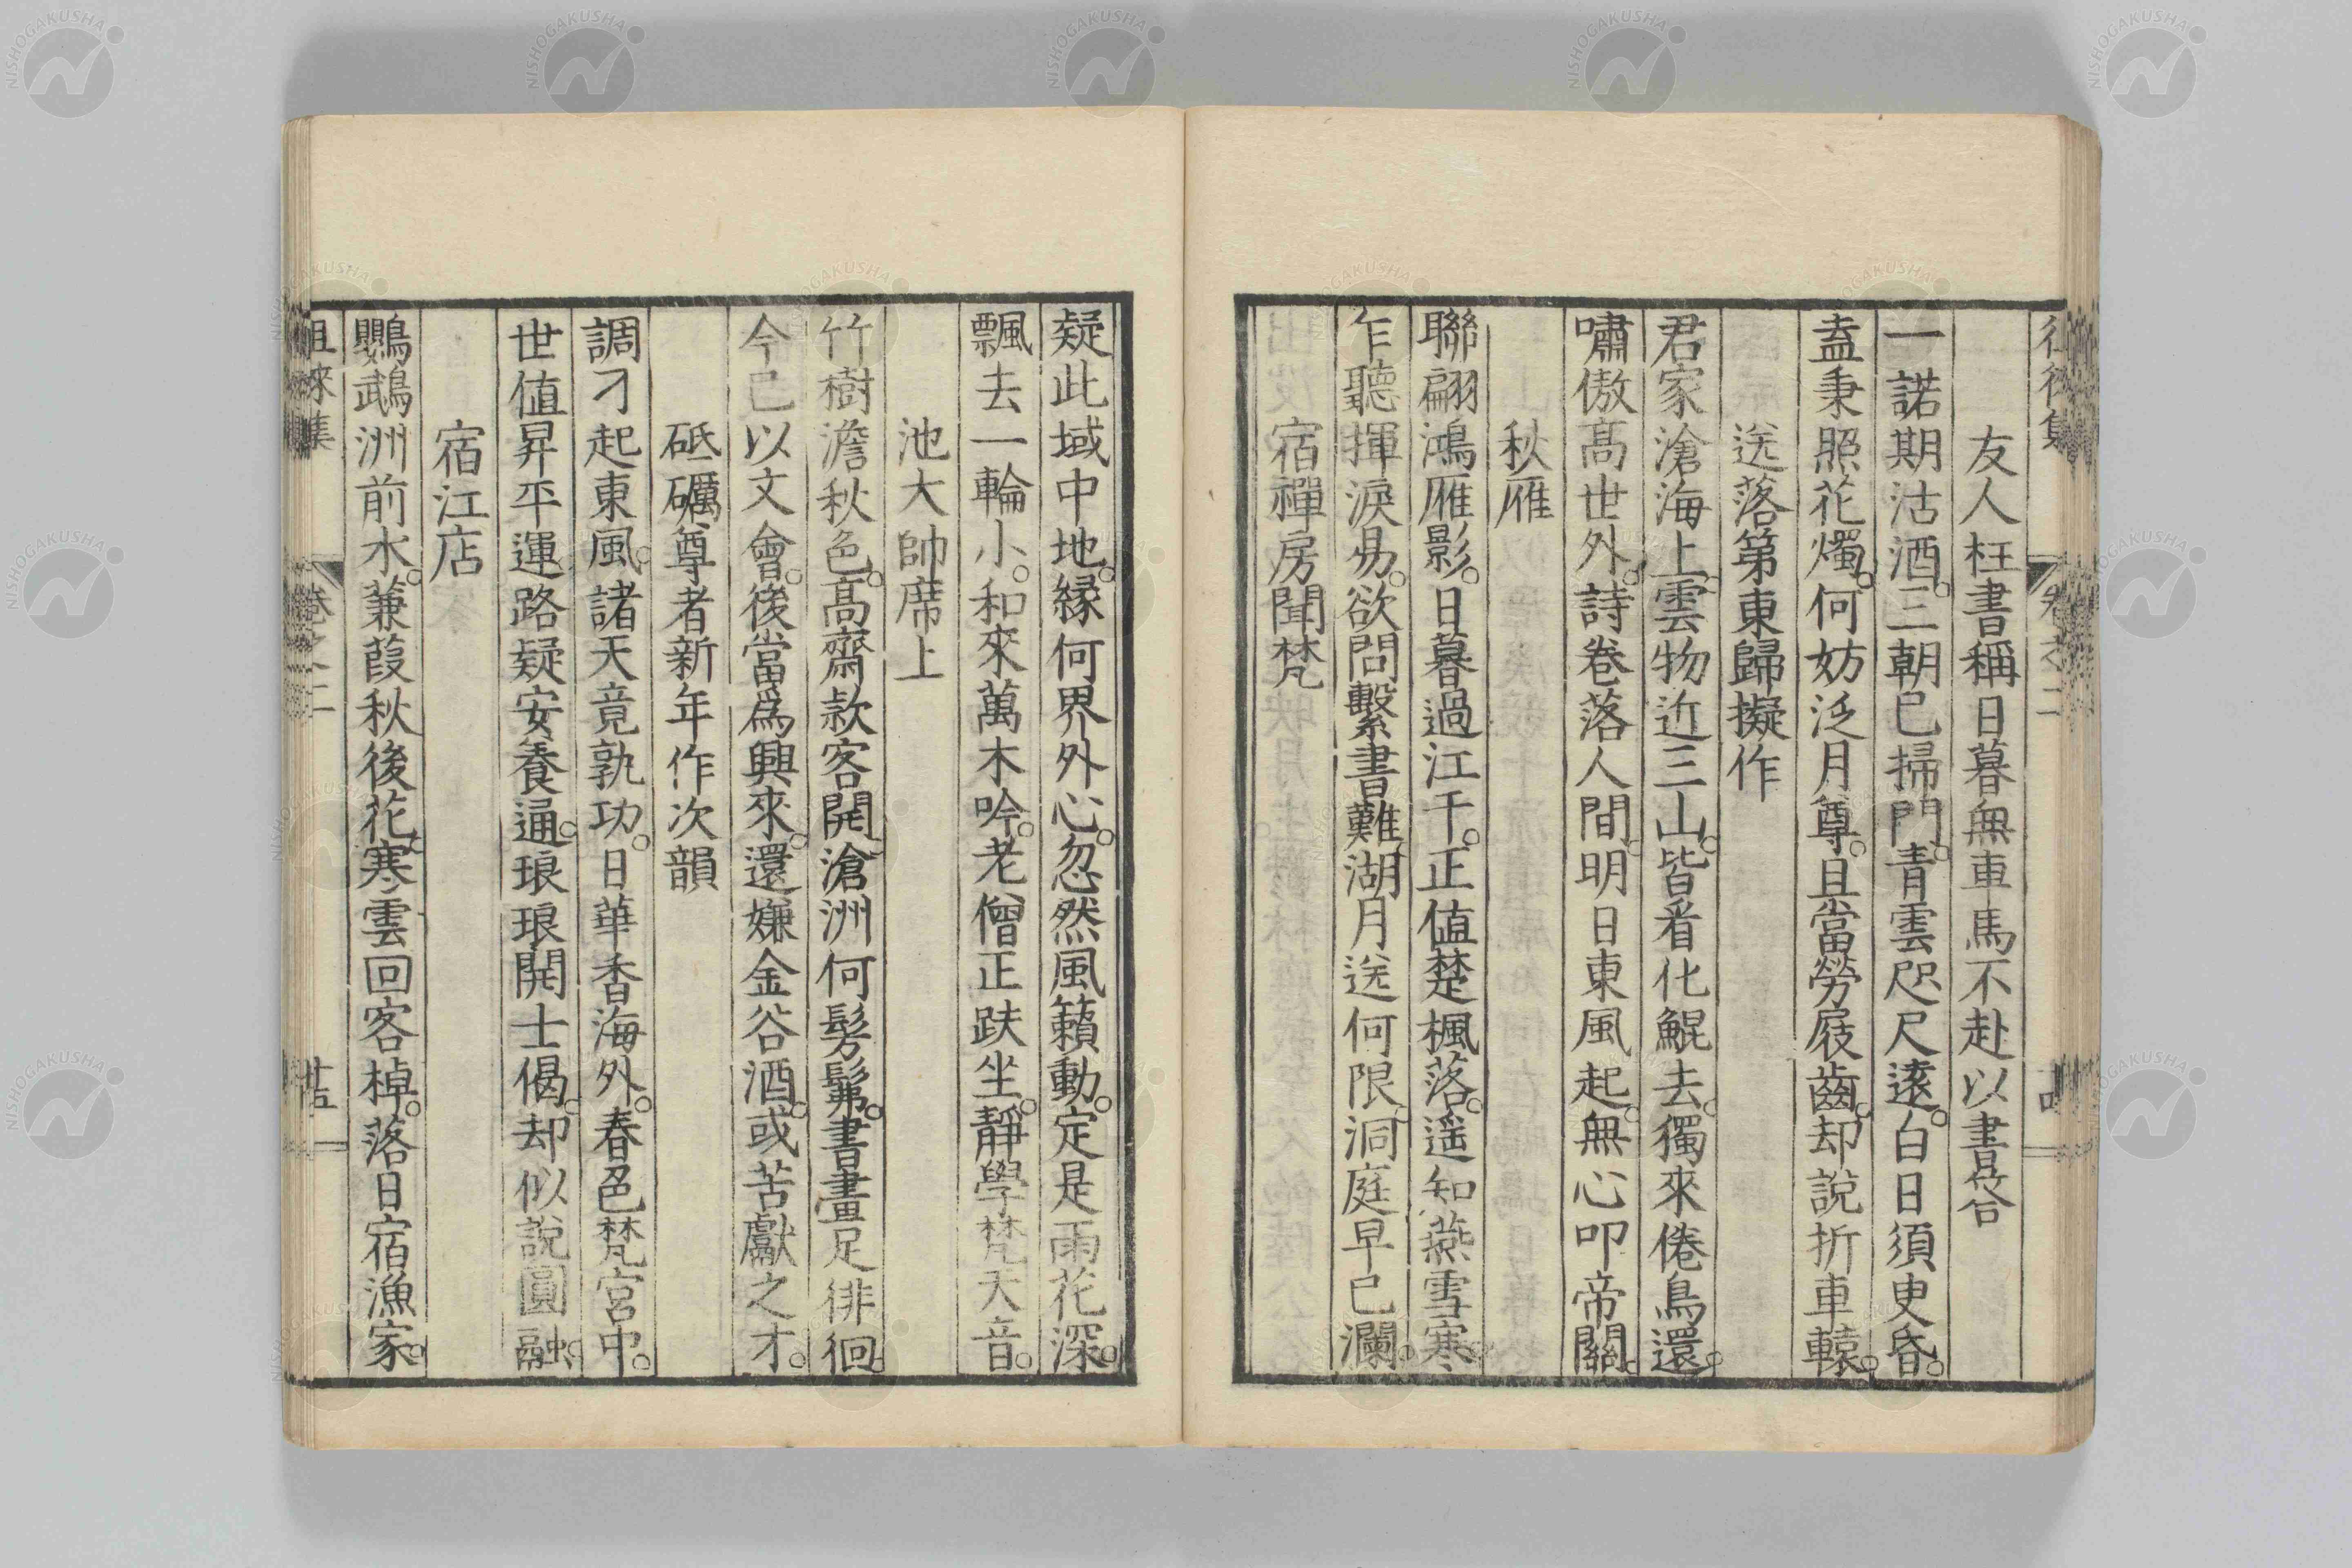 友人枉書稱日暮無車馬不赴以書答
一諾期沽酒三朝已掃門青雲咫尺遠白日須臾昏
盍秉照花燭何妨泛月尊且當勞屐齒却說折車轅
送落第東歸擬作
君家滄海上雲物近三山皆看化鯤去獨來倦鳥還
嘯傲高世外詩卷落人間明日東風起無心叩帝關
秋雁
聯翩鴻雁影日暮過江干正值楚楓落遥知燕雪寒
乍聽揮淚易欲問繫書難湖月送何限洞庭早已瀾
宿禪房聞梵
疑此域中地緣何界外心忽然風籟動定是雨花深
飄去一輪小和來萬木吟老僧正趺坐靜學梵天音
池大帥席上
竹樹澹秋色高齋款客開滄洲何髣髴書畫足徘徊
今已以文會後當爲興來還嫌金谷酒或苦獻之才
砥礪尊者新年作次韻
調刁起東風諸天竟孰功日華香海外春色梵宮中
世値昇平運路疑安養通琅琅開士偈却似說圓融
宿江店
鸚鵡洲前水蒹葭秋後花寒雲回客棹落日宿漁家
徂徠集
卷之二
廿五
NISHOGAKUSHA